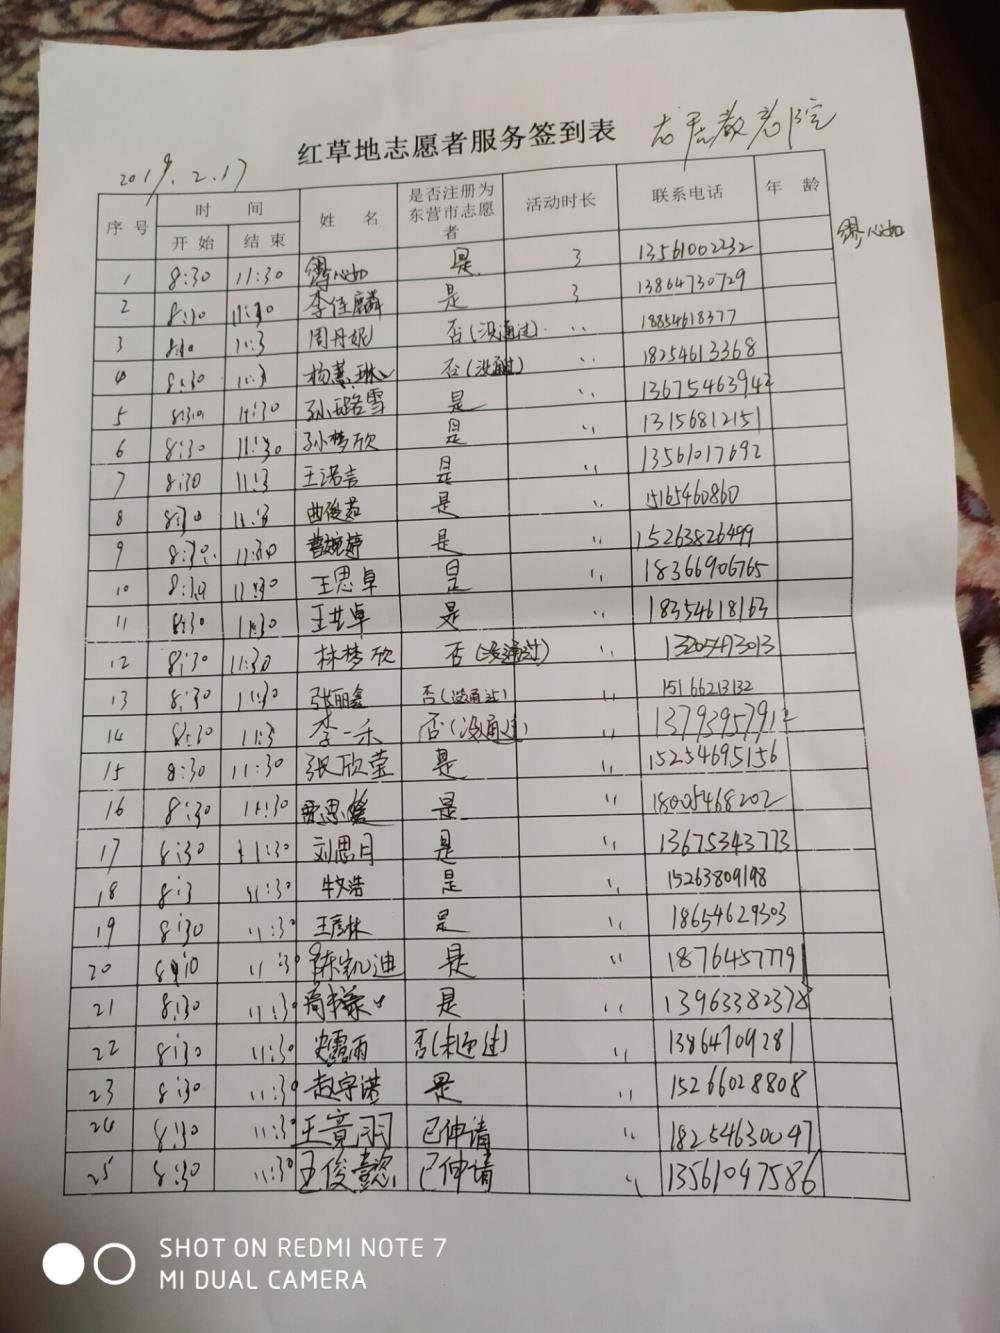 红草地志愿者服务签到表
2019.2.17
序号 时间 姓名 是否注册为东营市志愿者 活动时长 联系电话 年龄
开始 结束
心如
1 8:30 11:30 心如 是 3 13561002232
2 8:30 11:30 李佳麟 是 3 13864730729
3 11:3 周丹妮 否(没通过) 〃 18854618377
4 8:30 11:3 杨慧琳 否(没通过) 〃 18254613368
5 8:30 11:30 孙璐雪 是 〃 1367546394
6 8:30 11:30 孙梦欣 是 〃 13156812151
7 8:30 11:3 王诺言 是 〃 13561017692
8 8:30 11:3 曲俊茹 是 〃 15165460860
9 8:30 11:30 曹婉婷 是 〃 15263826499
10 8:30 11:30 王思卓 是 〃 18366906765
11 8:30 11:30 王艺卓 是 〃 18354618163
12 8:30 11:30 林梦欣 否(没通过) 〃 13205473013
13 8:30 11:30 张丽鑫 否(没通过) 〃 15166213132
14 8:30 11:3 李一禾 否(没通过) 〃 1379395791
15 8:30 11:30 张欣莹 是 〃 15254695156
16 8:30 11:30 思 是 〃 18005468202
17 8:30 11:30 刘思月 是 〃 13675343773
18 8:3 11:30 牧浩 是 〃 15263809198
19 8:30 11:30 王彦林 是 〃 18654629303
20 11:30 陈凯迪 是 〃 18764577791
21 8:30 11:30 是 〃 13963382378
22 8:30 11:30 史露雨 否(未通过) 〃 13864709281
23 8:30 11:30 赵宇诺 是 〃 15266028808
24 8:30 11:30 王竟羽 已申请 〃 18254630047
25 8:30 11:30 王俊懿 已申请 〃 13561097586
SHOT ON REDMI NOTE 7
MI DUAL CAMERA